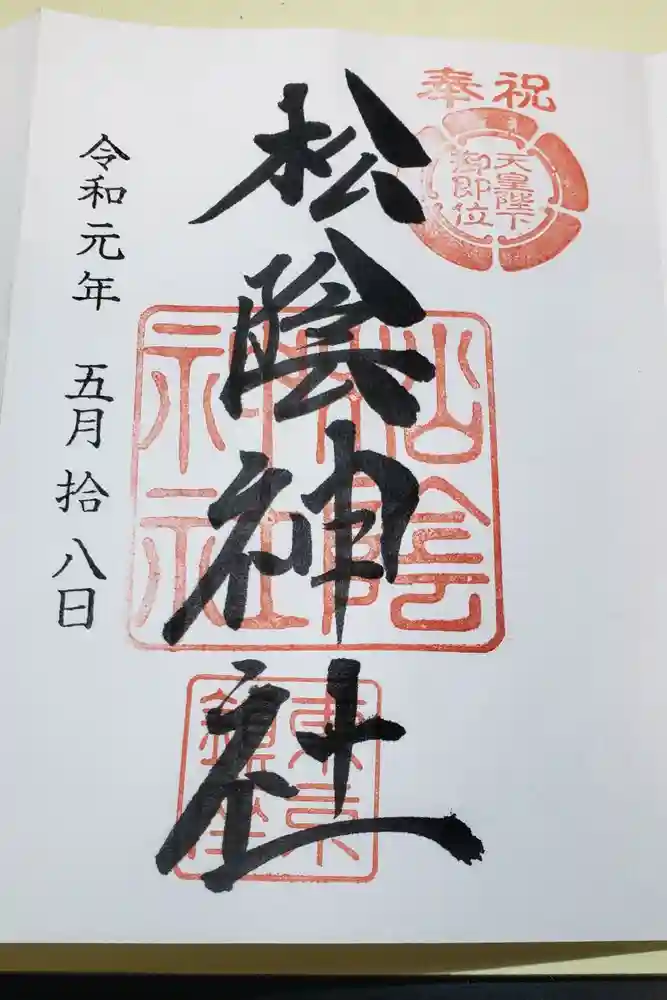 奉祝
天皇陛下
御即位
松陰神社
松陰
神社
東京
鎮座
令和元年 五月拾八日